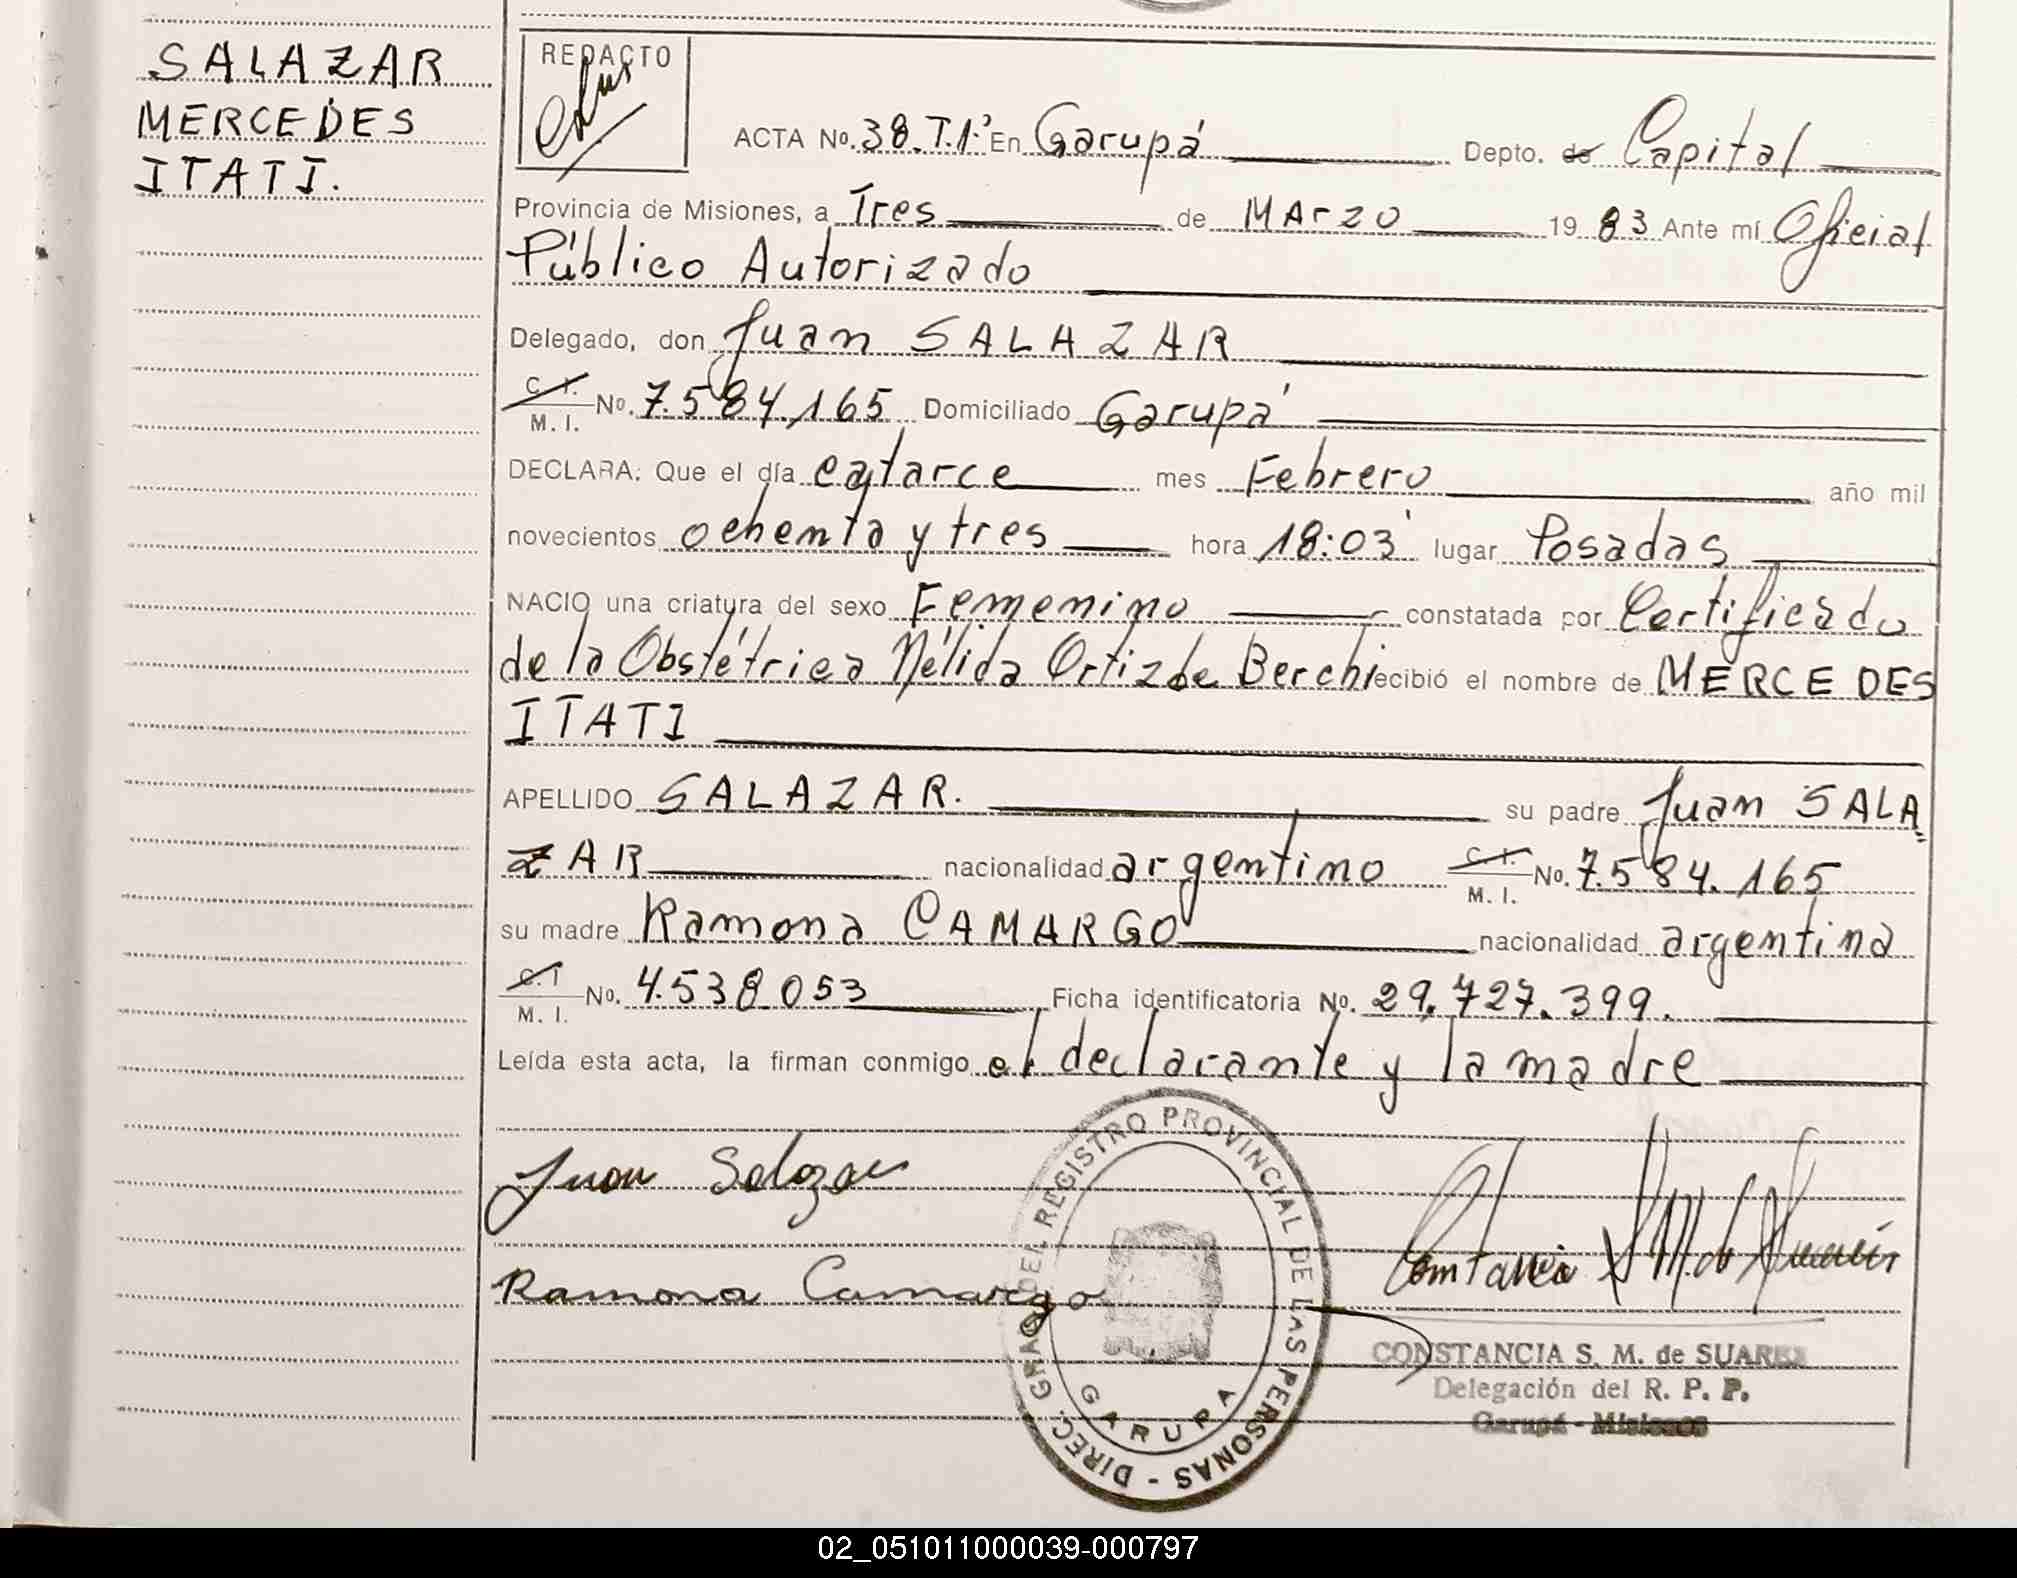 SALAZAR
MERCEDES
ITATI.
REDACTO
ACTA No. 38. T.1º En Garupá Depto. de Capital
Provincia de Misiones, a Tres de MArzo 1983 Ante mí Oficial
Público Autorizado
Delegado, don Juan SALAZAR
C. I. / M. I. No. 7.584.165 Domiciliado Garupá
DECLARA: Que el día catarce mes Febrero año mil
novecientos ochenta y tres hora 18:03' lugar Posadas
NACIO una criatura del sexo Femenino constatada por Certificado
de la Obstétrica Nélida Ortiz de Berchi ecibió el nombre de MERCEDES
ITATI
APELLIDO SALAZAR. su padre Juan SALA=
ZAR nacionalidad argentino C. I. / M. I. No. 7.584.165
su madre Ramona CAMARGO nacionalidad argentina
C. I / M. I. No. 4.538.053 Ficha identificatoria No. 29.727.399.
Leída esta acta, la firman conmigo el declarante y la madre
Juan Salazar
Ramona Camargo
DIREC. GRAL. DEL REGISTRO PROVINCIAL DE LAS PERSONAS -
GARUPA
Constancia S. M. de Suarez
CONSTANCIA S. M. de SUAREZ
Delegación del R. P. P.
Garupá - Misiones
02_051011000039-000797